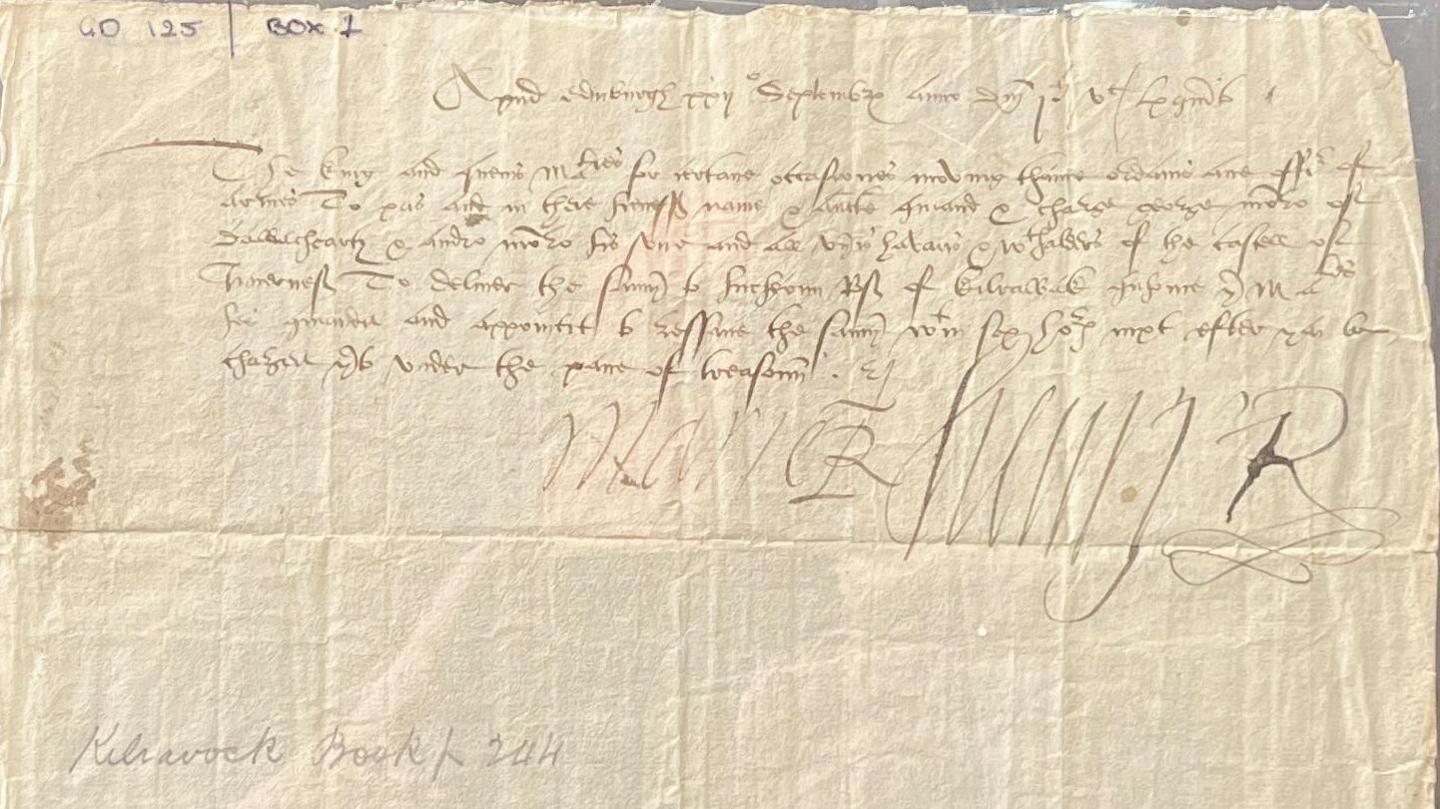 GD 125 | BOX 1
Apud Edinburgh xxij° Septembris anno dm̄ j^m v^c lxquinto
The king and quenis Ma^teis for certane occasiones moving thame ordanis ane offi^r of
armes To pas and in thare hienes name & au^te co^mand & charge george monro of
dawachcarty & andro monro his sone and all uy^ris havaris & w^thaldaris of the castell of
Inuernes To deliuer the samyn to hucheoun Ros of Kilrawak quhome y^r Ma^teis
hes co^mandit and appointit to ressave the samyn w^tin sex ho^ris nixt efter yai be
chargeit y^rto under the pane of tressoun . &c
Marie R Henry R
Kilravock Book p 244